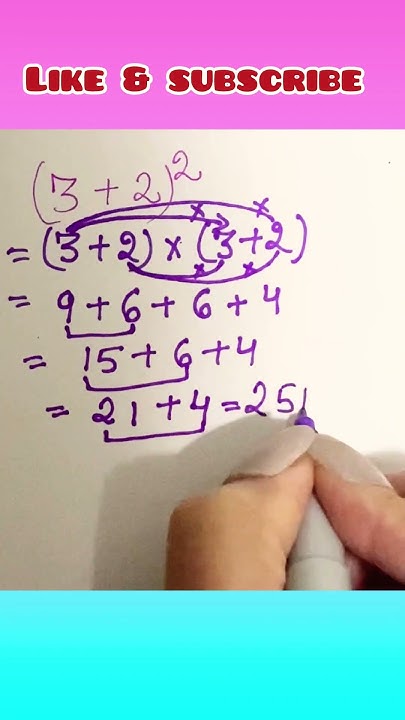 LIKE & SUBSCRIBE
(3 + 2)²
= (3 + 2) × (3 + 2)
= 9 + 6 + 6 + 4
= 15 + 6 + 4
= 21 + 4 = 25